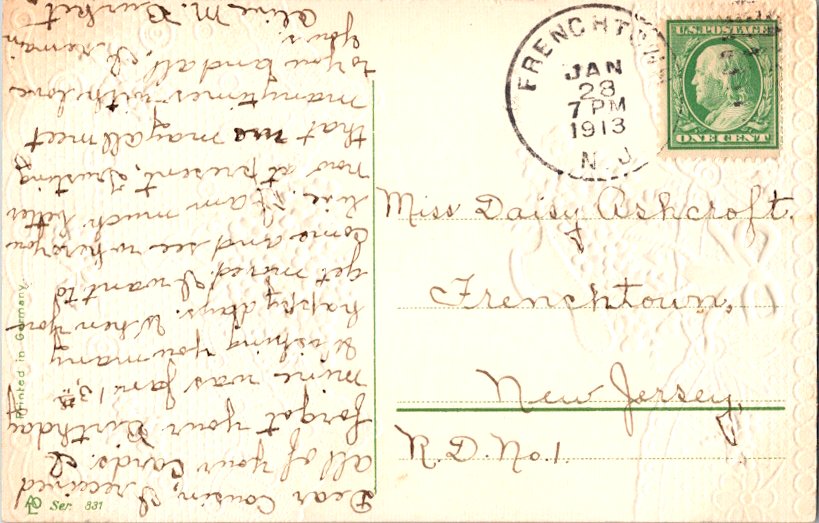 Dear Cousin, I received
all of your Cards. I
forgot your Birthday
mine was Jan 13,th
Wishing you many
happy days. When you
get moved I want to
come and see where you
live. I am much better
now at present, trusting
that we may all meet
many times with love
to you and all, I remain
Yours.
Oline M. Burket.
FRENCHTOWN
JAN
23
7 PM
1913
N. J.
U.S. POSTAGE
ONE CENT
Miss Daisy Ashcroft.
Frenchtown,
New Jersey,
R.D. No. 1.
Printed in Germany.
Ser. 831